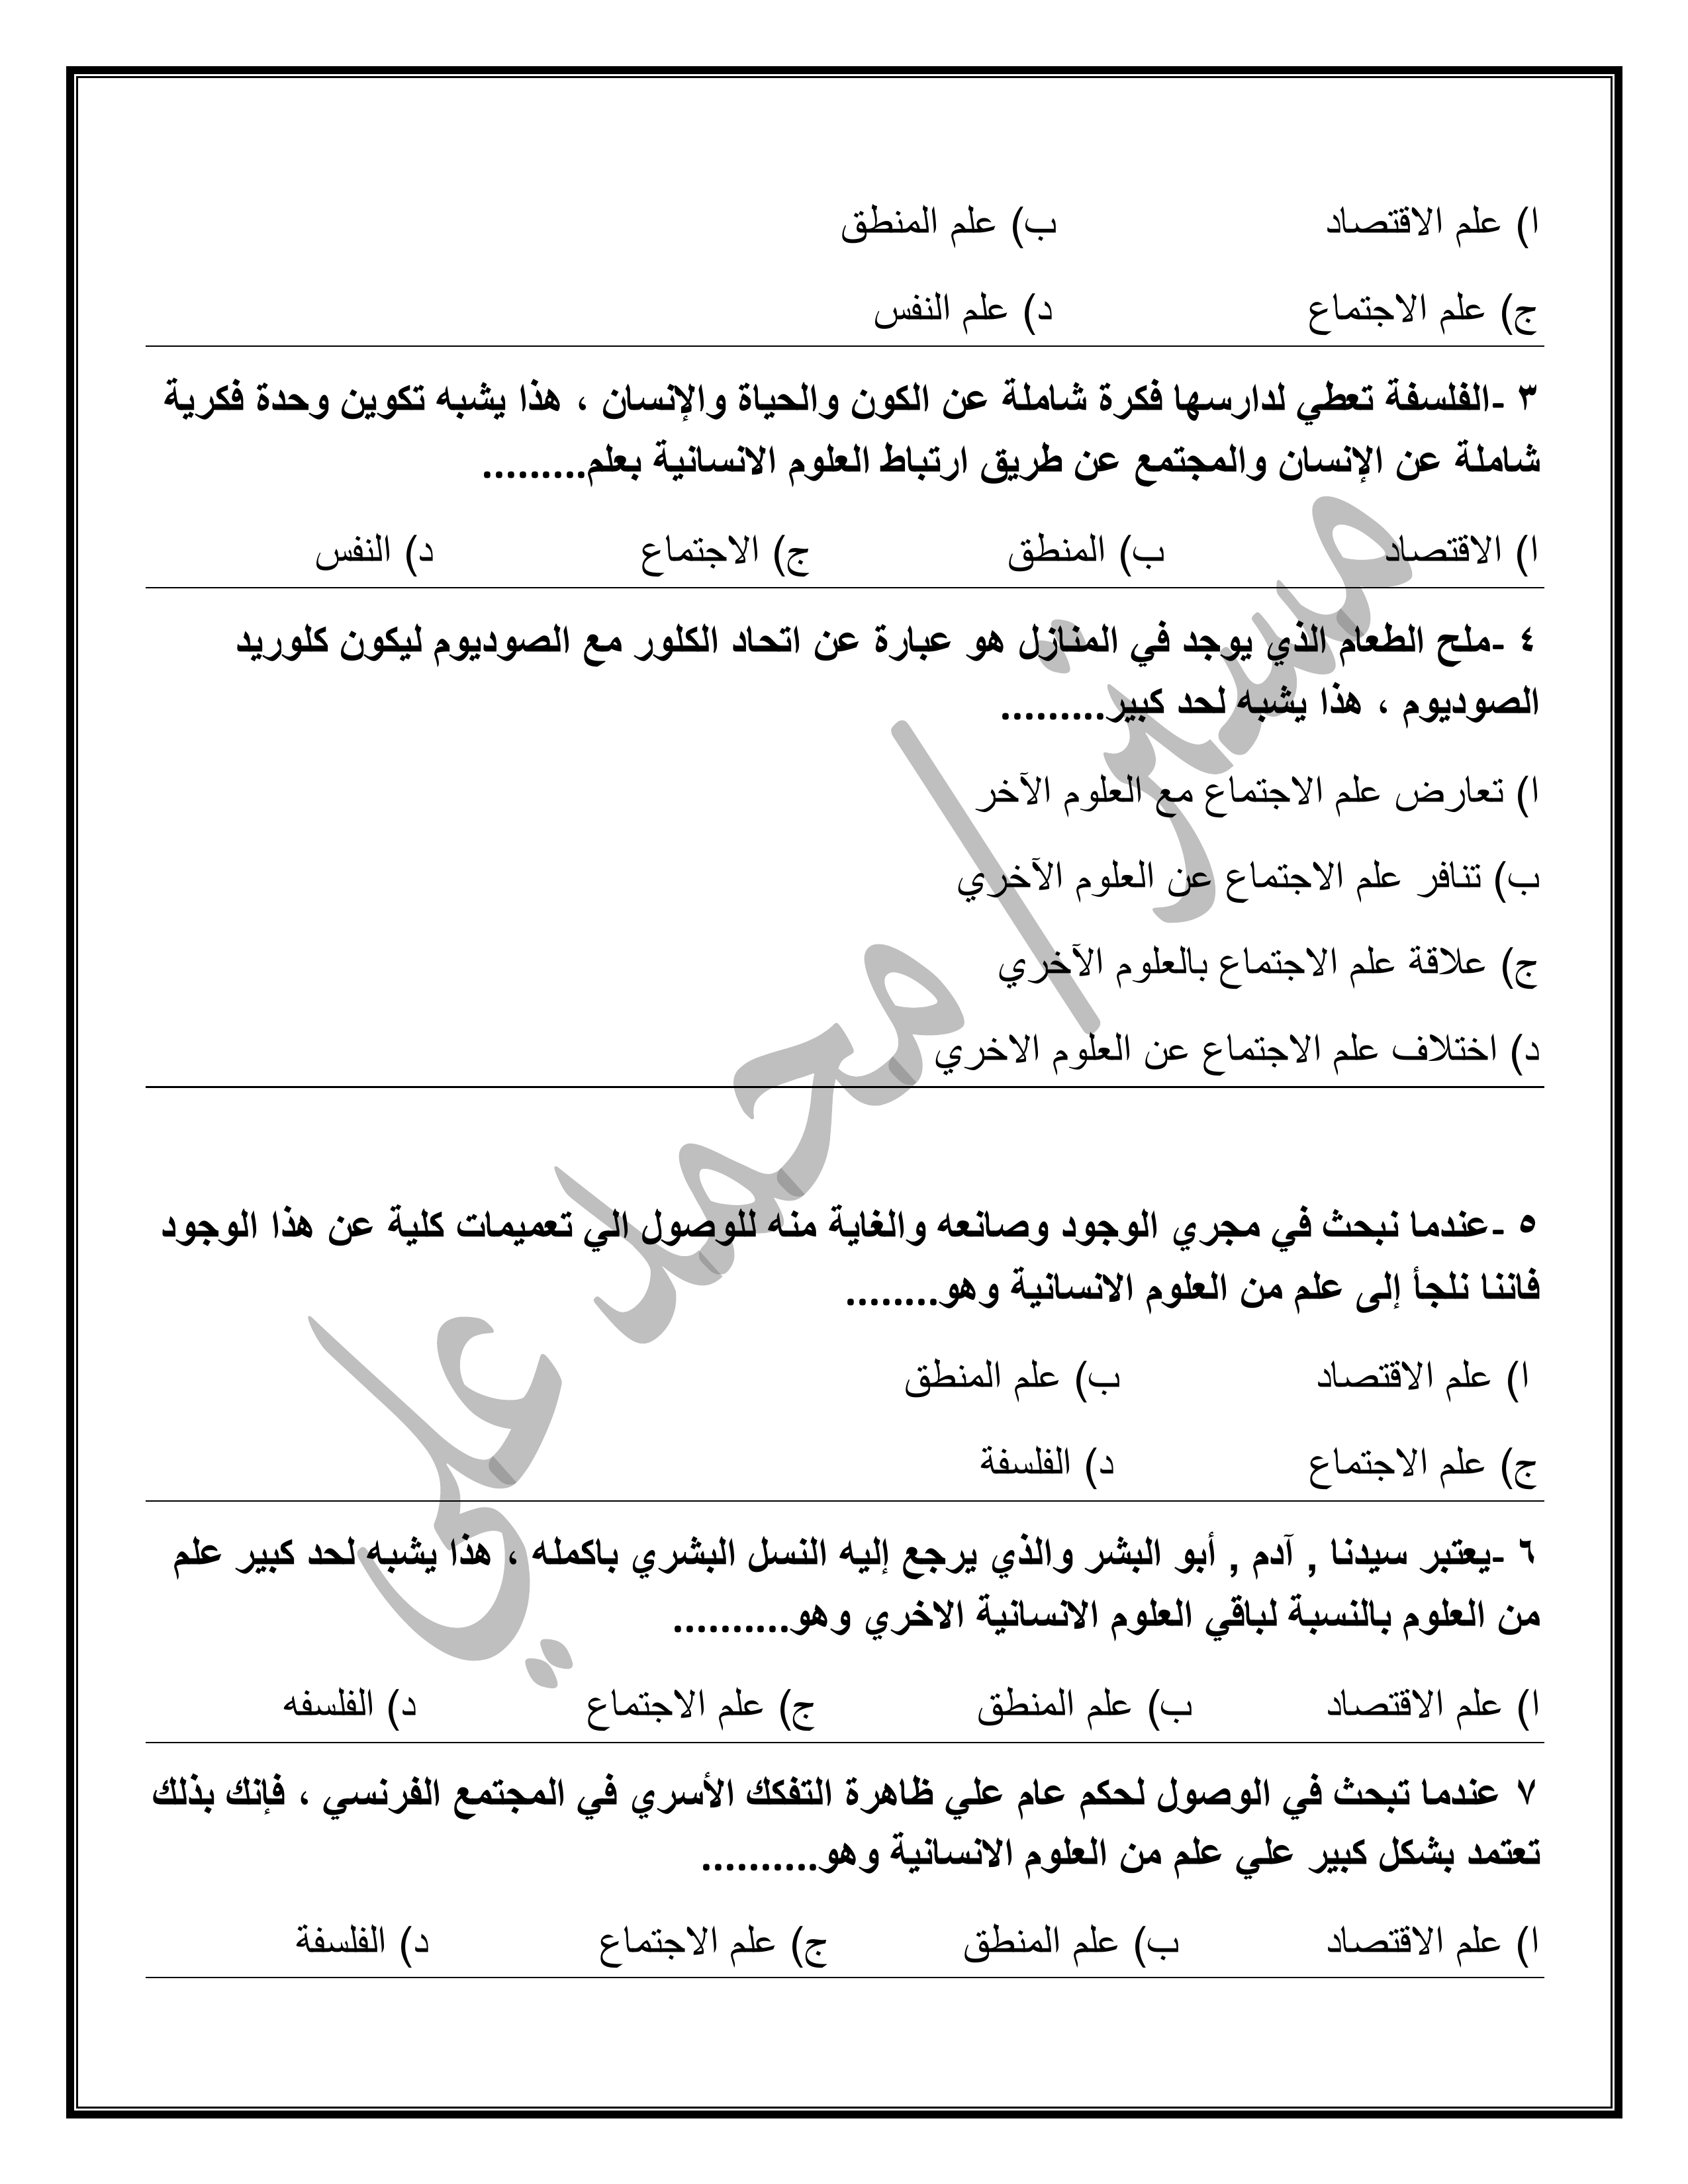 ا) علم الاقتصاد ب) علم المنطق
ج) علم الاجتماع د) علم النفس
٣ -الفلسفة تعطي لدارسها فكرة شاملة عن الكون والحياة والإنسان ، هذا يشبه تكوين وحدة فكرية
شاملة عن الإنسان والمجتمع عن طريق ارتباط العلوم الانسانية بعلم.........
ا) الاقتصاد ب) المنطق ج) الاجتماع د) النفس
٤ -ملح الطعام الذي يوجد في المنازل هو عبارة عن اتحاد الكلور مع الصوديوم ليكون كلوريد
الصوديوم ، هذا يشبه لحد كبير.........
ا) تعارض علم الاجتماع مع العلوم الآخر
ب) تنافر علم الاجتماع عن العلوم الآخري
ج) علاقة علم الاجتماع بالعلوم الآخري
د) اختلاف علم الاجتماع عن العلوم الاخري
٥ -عندما نبحث في مجري الوجود وصانعه والغاية منه للوصول الي تعميمات كلية عن هذا الوجود
فاننا نلجأ إلى علم من العلوم الانسانية وهو........
ا) علم الاقتصاد ب) علم المنطق
ج) علم الاجتماع د) الفلسفة
٦ -يعتبر سيدنا , آدم , أبو البشر والذي يرجع إليه النسل البشري باكمله ، هذا يشبه لحد كبير علم
من العلوم بالنسبة لباقي العلوم الانسانية الاخري وهو..........
ا) علم الاقتصاد ب) علم المنطق ج) علم الاجتماع د) الفلسفه
٧ عندما تبحث في الوصول لحكم عام علي ظاهرة التفكك الأسري في المجتمع الفرنسي ، فإنك بذلك
تعتمد بشكل كبير علي علم من العلوم الانسانية وهو..........
ا) علم الاقتصاد ب) علم المنطق ج) علم الاجتماع د) الفلسفة
مستر/محمد علي